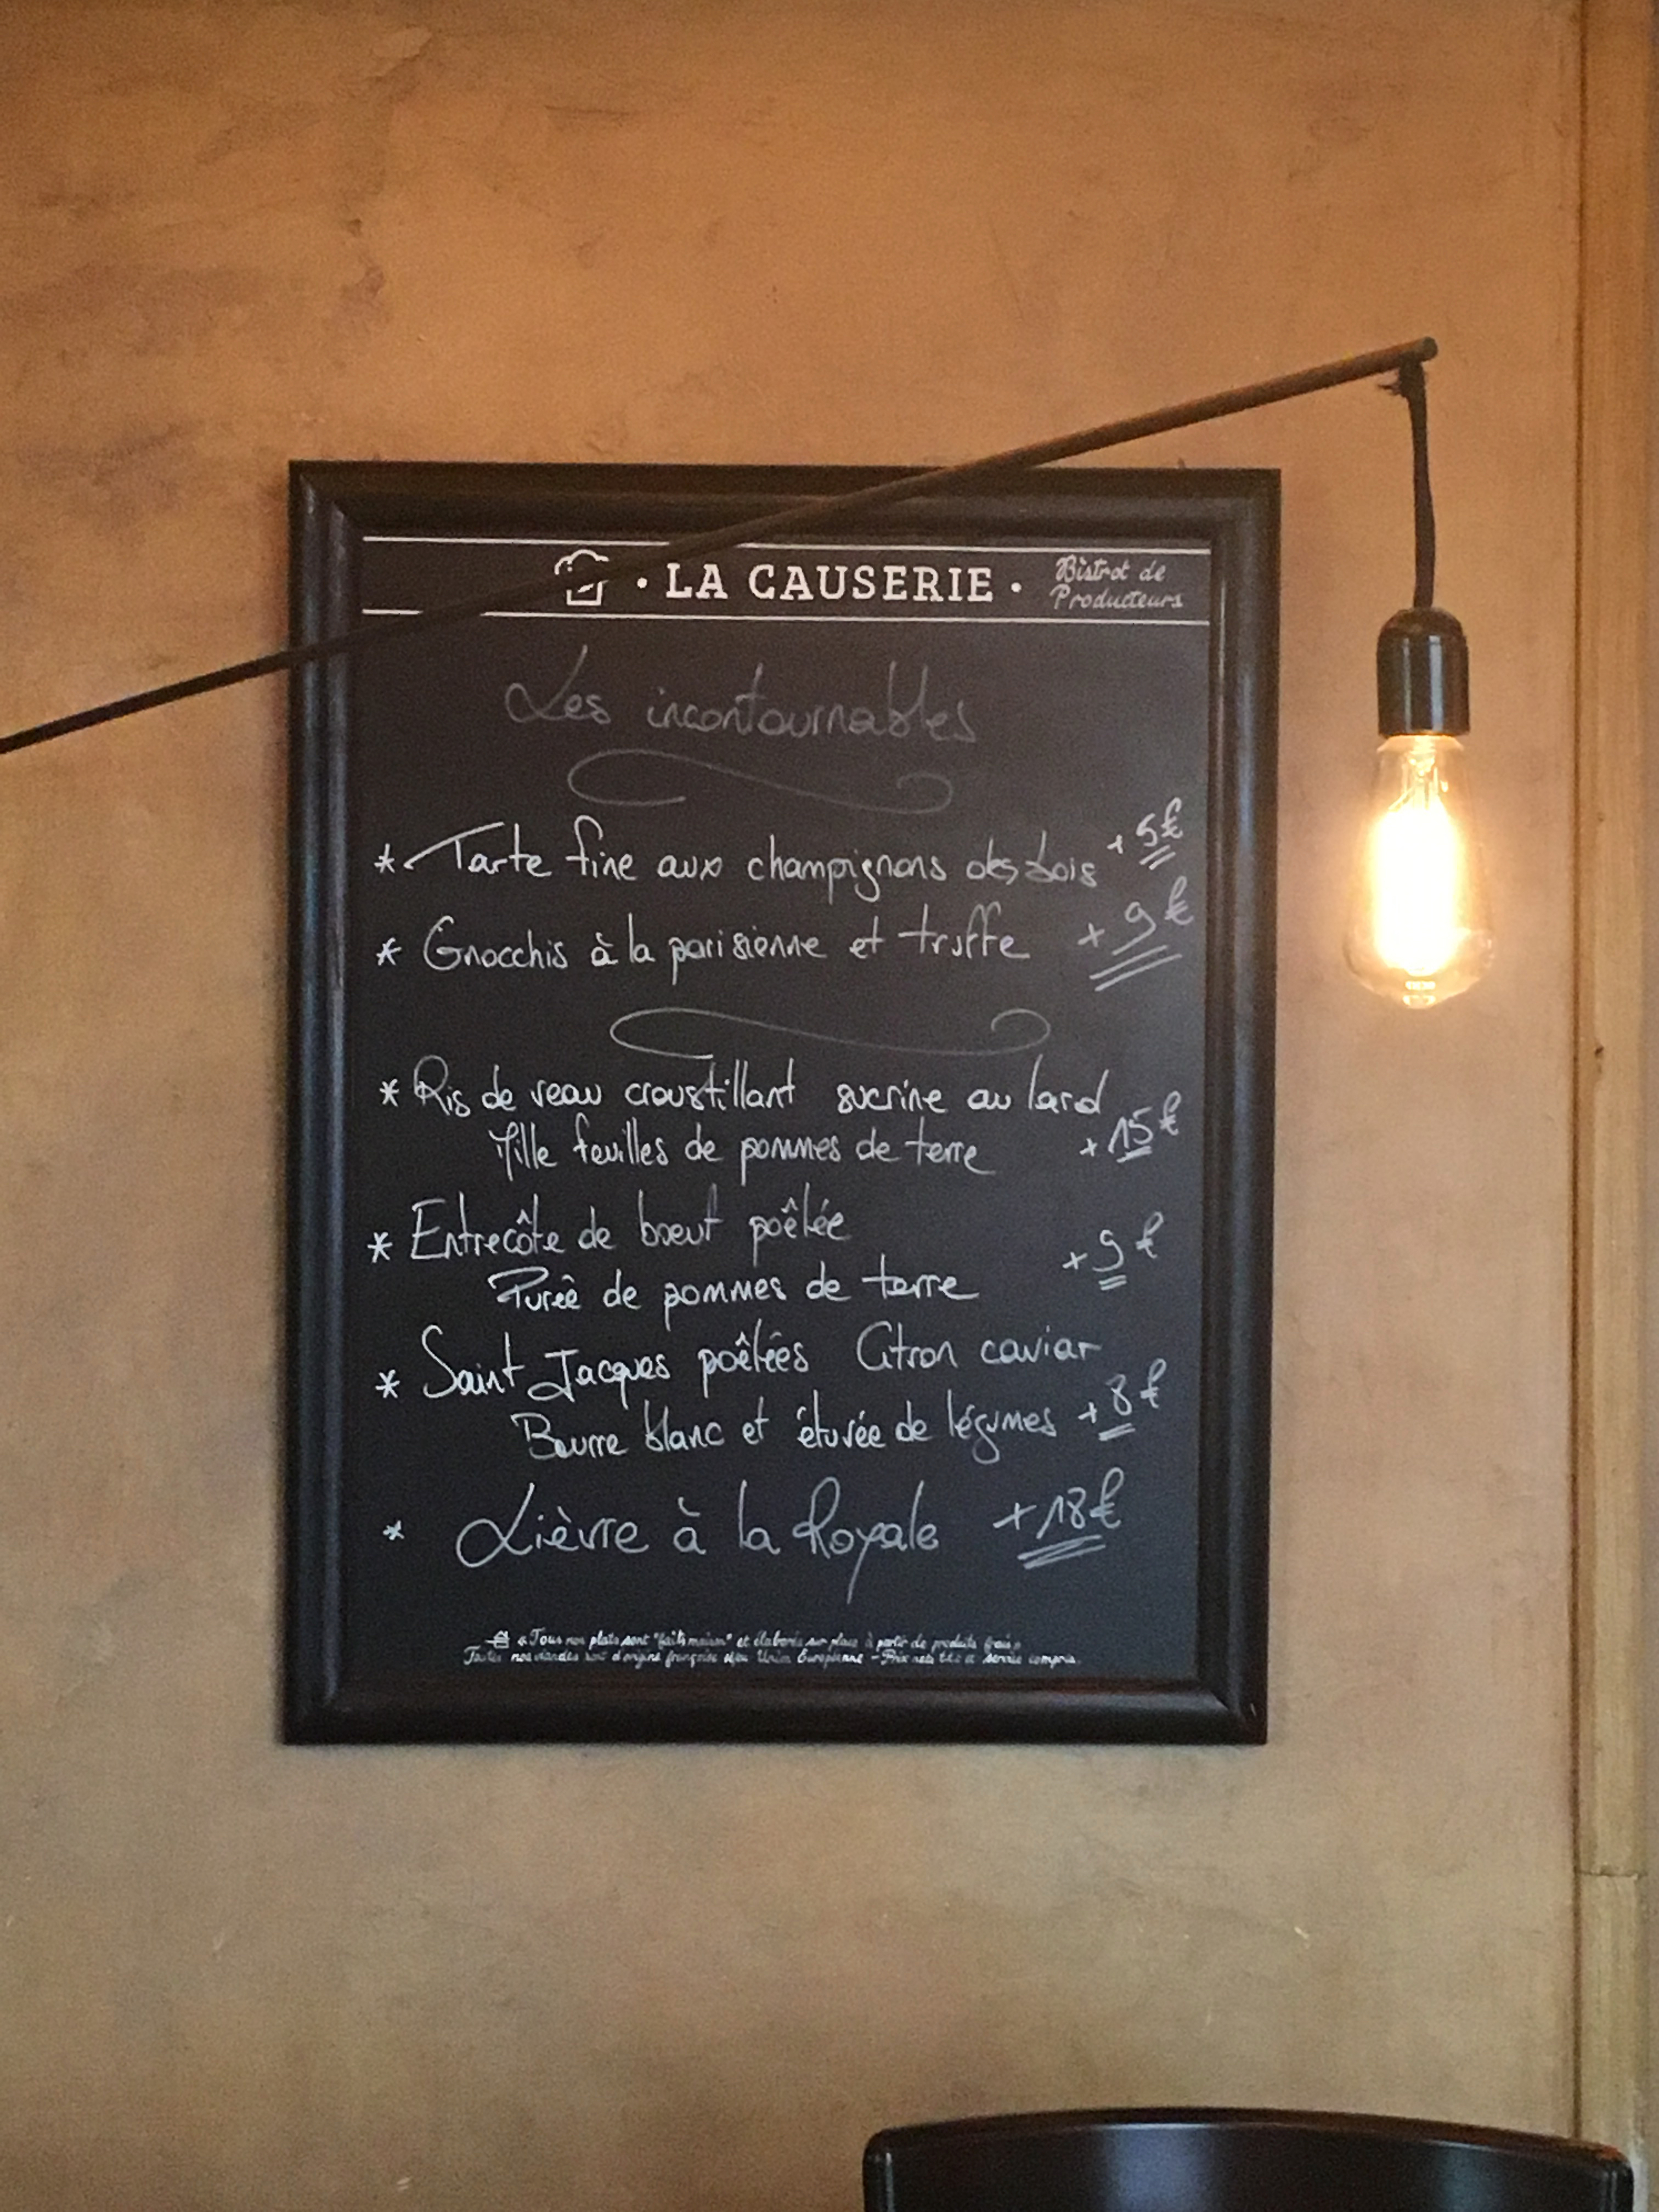 · LA CAUSERIE ·
Bistrot de
Producteurs
Les incontournables
* Tarte fine aux champignons des bois +5€
* Gnocchis à la parisienne et truffe +9€
* Ris de veau croustillant sucrine au lard
Mille feuilles de pommes de terre +15€
* Entrecôte de boeuf poêlée
Purée de pommes de terre +9€
* Saint Jacques poêlées Citron caviar
Beurre blanc et étuvée de légumes +8€
* Lièvre à la Royale +18€
« Tous nos plats sont "faits maison" et élaborés sur place à partir de produits frais »
Toutes nos viandes sont d'origine française Union Européenne - Prix nets service compris.